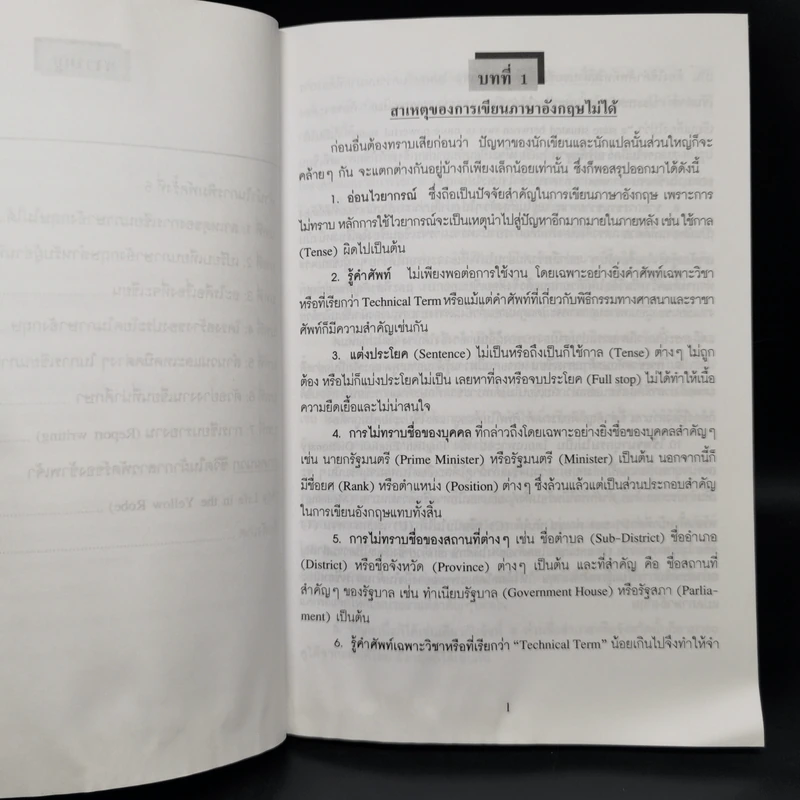 บทที่ 1
สาเหตุของการเขียนภาษาอังกฤษไม่ได้
ก่อนอื่นต้องทราบเสียก่อนว่า ปัญหาของนักเขียนและนักแปลนั้นส่วนใหญ่ก็จะ
คล้ายๆ กัน จะแตกต่างกันอยู่บ้างก็เพียงเล็กน้อยเท่านั้น ซึ่งก็พอสรุปออกมาได้ดังนี้
1. อ่อนไวยากรณ์ ซึ่งถือเป็นปัจจัยสำคัญในการเขียนภาษาอังกฤษ เพราะการ
ไม่ทราบ หลักการใช้ไวยากรณ์จะเป็นเหตุนำไปสู่ปัญหาอีกมากมายในภายหลัง เช่น ใช้กาล
(Tense) ผิดไปเป็นต้น
2. รู้คำศัพท์ ไม่เพียงพอต่อการใช้งาน โดยเฉพาะอย่างยิ่งคำศัพท์เฉพาะวิชา
หรือที่เรียกว่า Technical Term หรือแม้แต่คำศัพท์ที่เกี่ยวกับพิธีกรรมทางศาสนาและราชา
ศัพท์ก็มีความสำคัญเช่นกัน
3. แต่งประโยค (Sentence) ไม่เป็นหรือถึงเป็นก็ใช้กาล (Tense) ต่างๆ ไม่ถูก
ต้อง หรือไม่ก็แบ่งประโยคไม่เป็น เลยหาที่ลงหรือจบประโยค (Full stop) ไม่ได้ทำให้เนื้อ
ความยืดเยื้อและไม่น่าสนใจ
4. การไม่ทราบชื่อของบุคคล ที่กล่าวถึงโดยเฉพาะอย่างยิ่งชื่อของบุคคลสำคัญๆ
เช่น นายกรัฐมนตรี (Prime Minister) หรือรัฐมนตรี (Minister) เป็นต้น นอกจากนี้ก็
มีชื่อยศ (Rank) หรือตำแหน่ง (Position) ต่างๆ ซึ่งล้วนแล้วแต่เป็นส่วนประกอบสำคัญ
ในการเขียนอังกฤษแทบทั้งสิ้น
5. การไม่ทราบชื่อของสถานที่ต่างๆ เช่น ชื่อตำบล (Sub-District) ชื่ออำเภอ
(District) หรือชื่อจังหวัด (Province) ต่างๆ เป็นต้น และที่สำคัญ คือ ชื่อสถานที่
สำคัญๆ ของรัฐบาล เช่น ทำเนียบรัฐบาล (Government House) หรือรัฐสภา (Parlia-
ment) เป็นต้น
6. รู้คำศัพท์เฉพาะวิชาหรือที่เรียกว่า "Technical Term" น้อยเกินไปจึงทำให้จำ
1